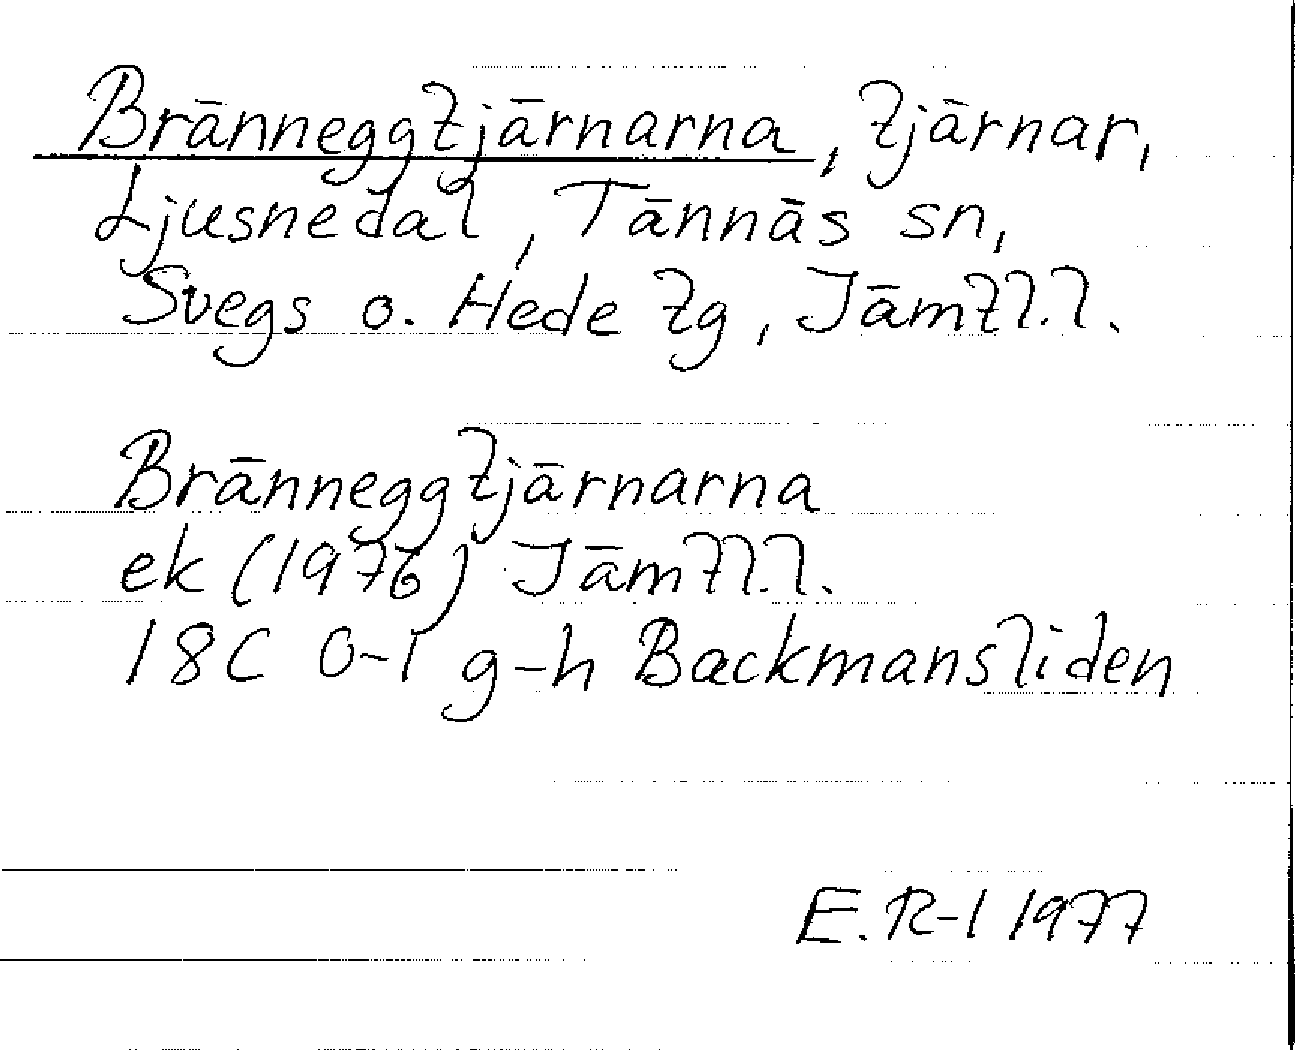 Bränneggtjärnarna, tjärnar,
Ljusnedal, Tännäs sn,
Svegs o. Hede tg, Jämtl.l.
Bränneggtjärnarna
ek (1976) Jämtl.l.
18C 0-1 g-h Backmansliden
E.R-l 1977